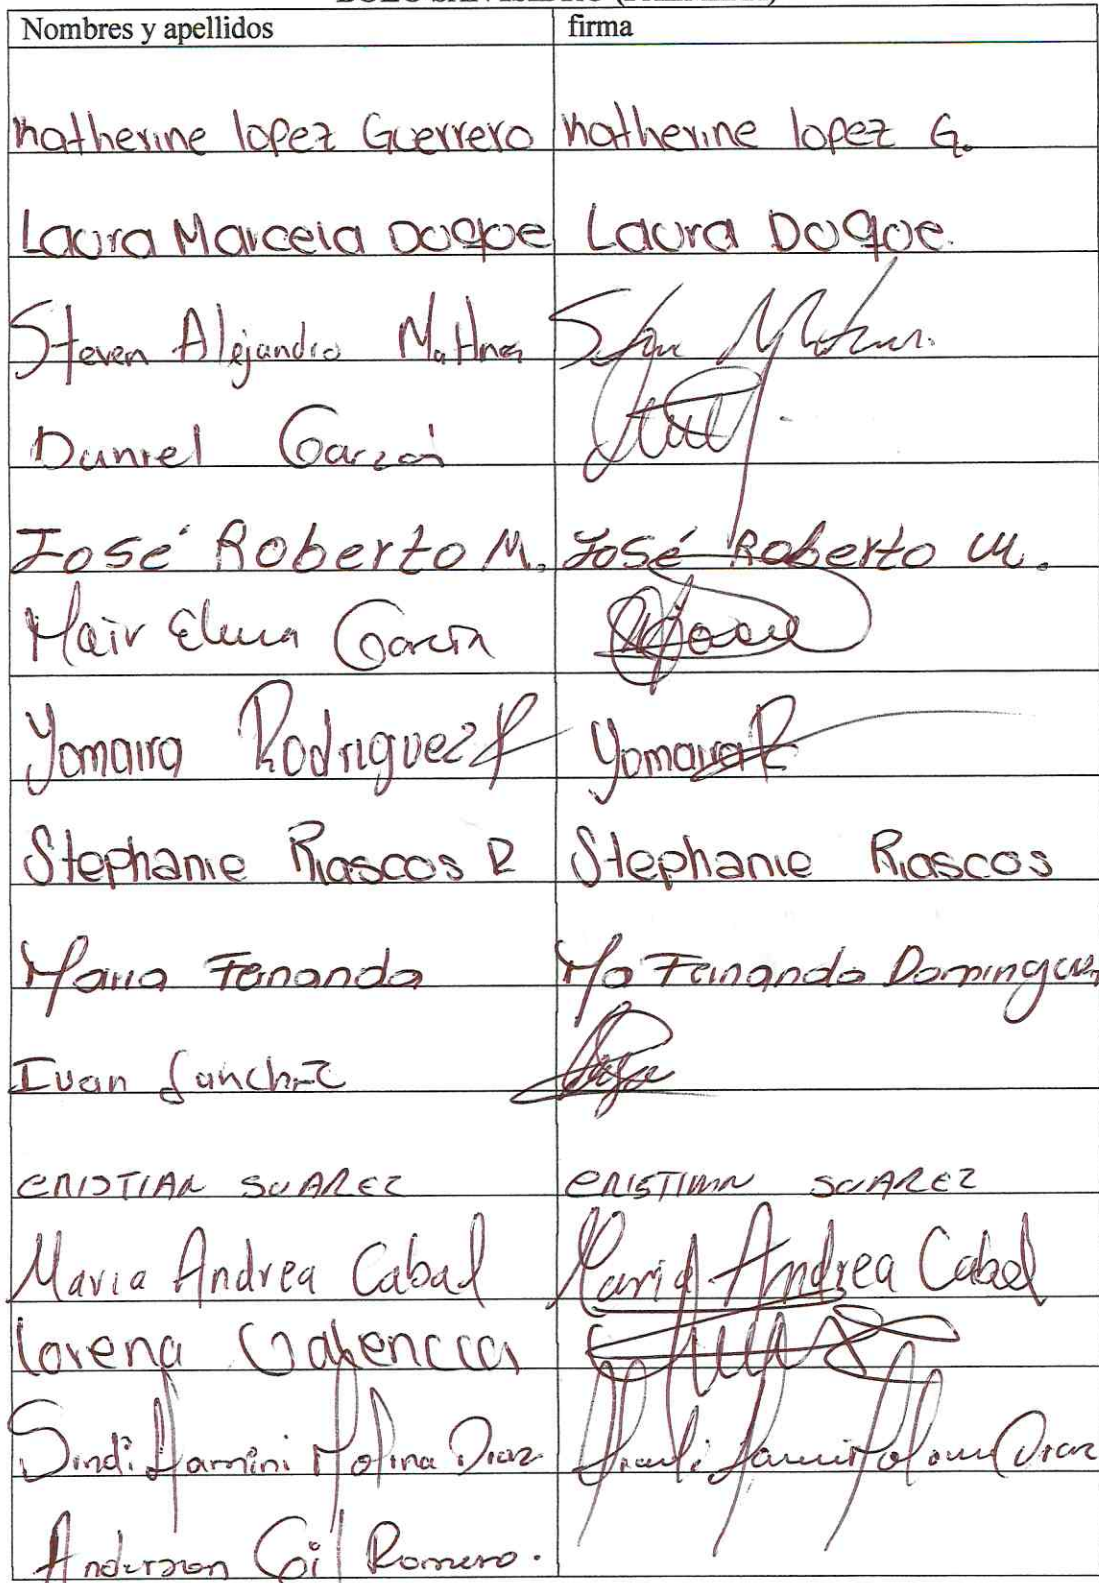 Nombres y apellidos firma
Katherine lopez Guerrero Katherine lopez G.
Laura Marcela Duque Laura Duque.
Steven Alejandro
Daniel Garzón
José Roberto M. José Roberto M.
Elena Garcia
Yomaira Rodriguez Yomaira R
Stephanie Riascos R Stephanie Riascos
Maria Fernanda Ma Fernanda Dominguez
Ivan Sanchez
CRISTIAN SUAREZ CRISTIAN SUAREZ
Maria Andrea Cabal Maria Andrea Cabal
Lorena Valencia
Sindi Molina Diaz Diaz
Anderson Gil Romero.